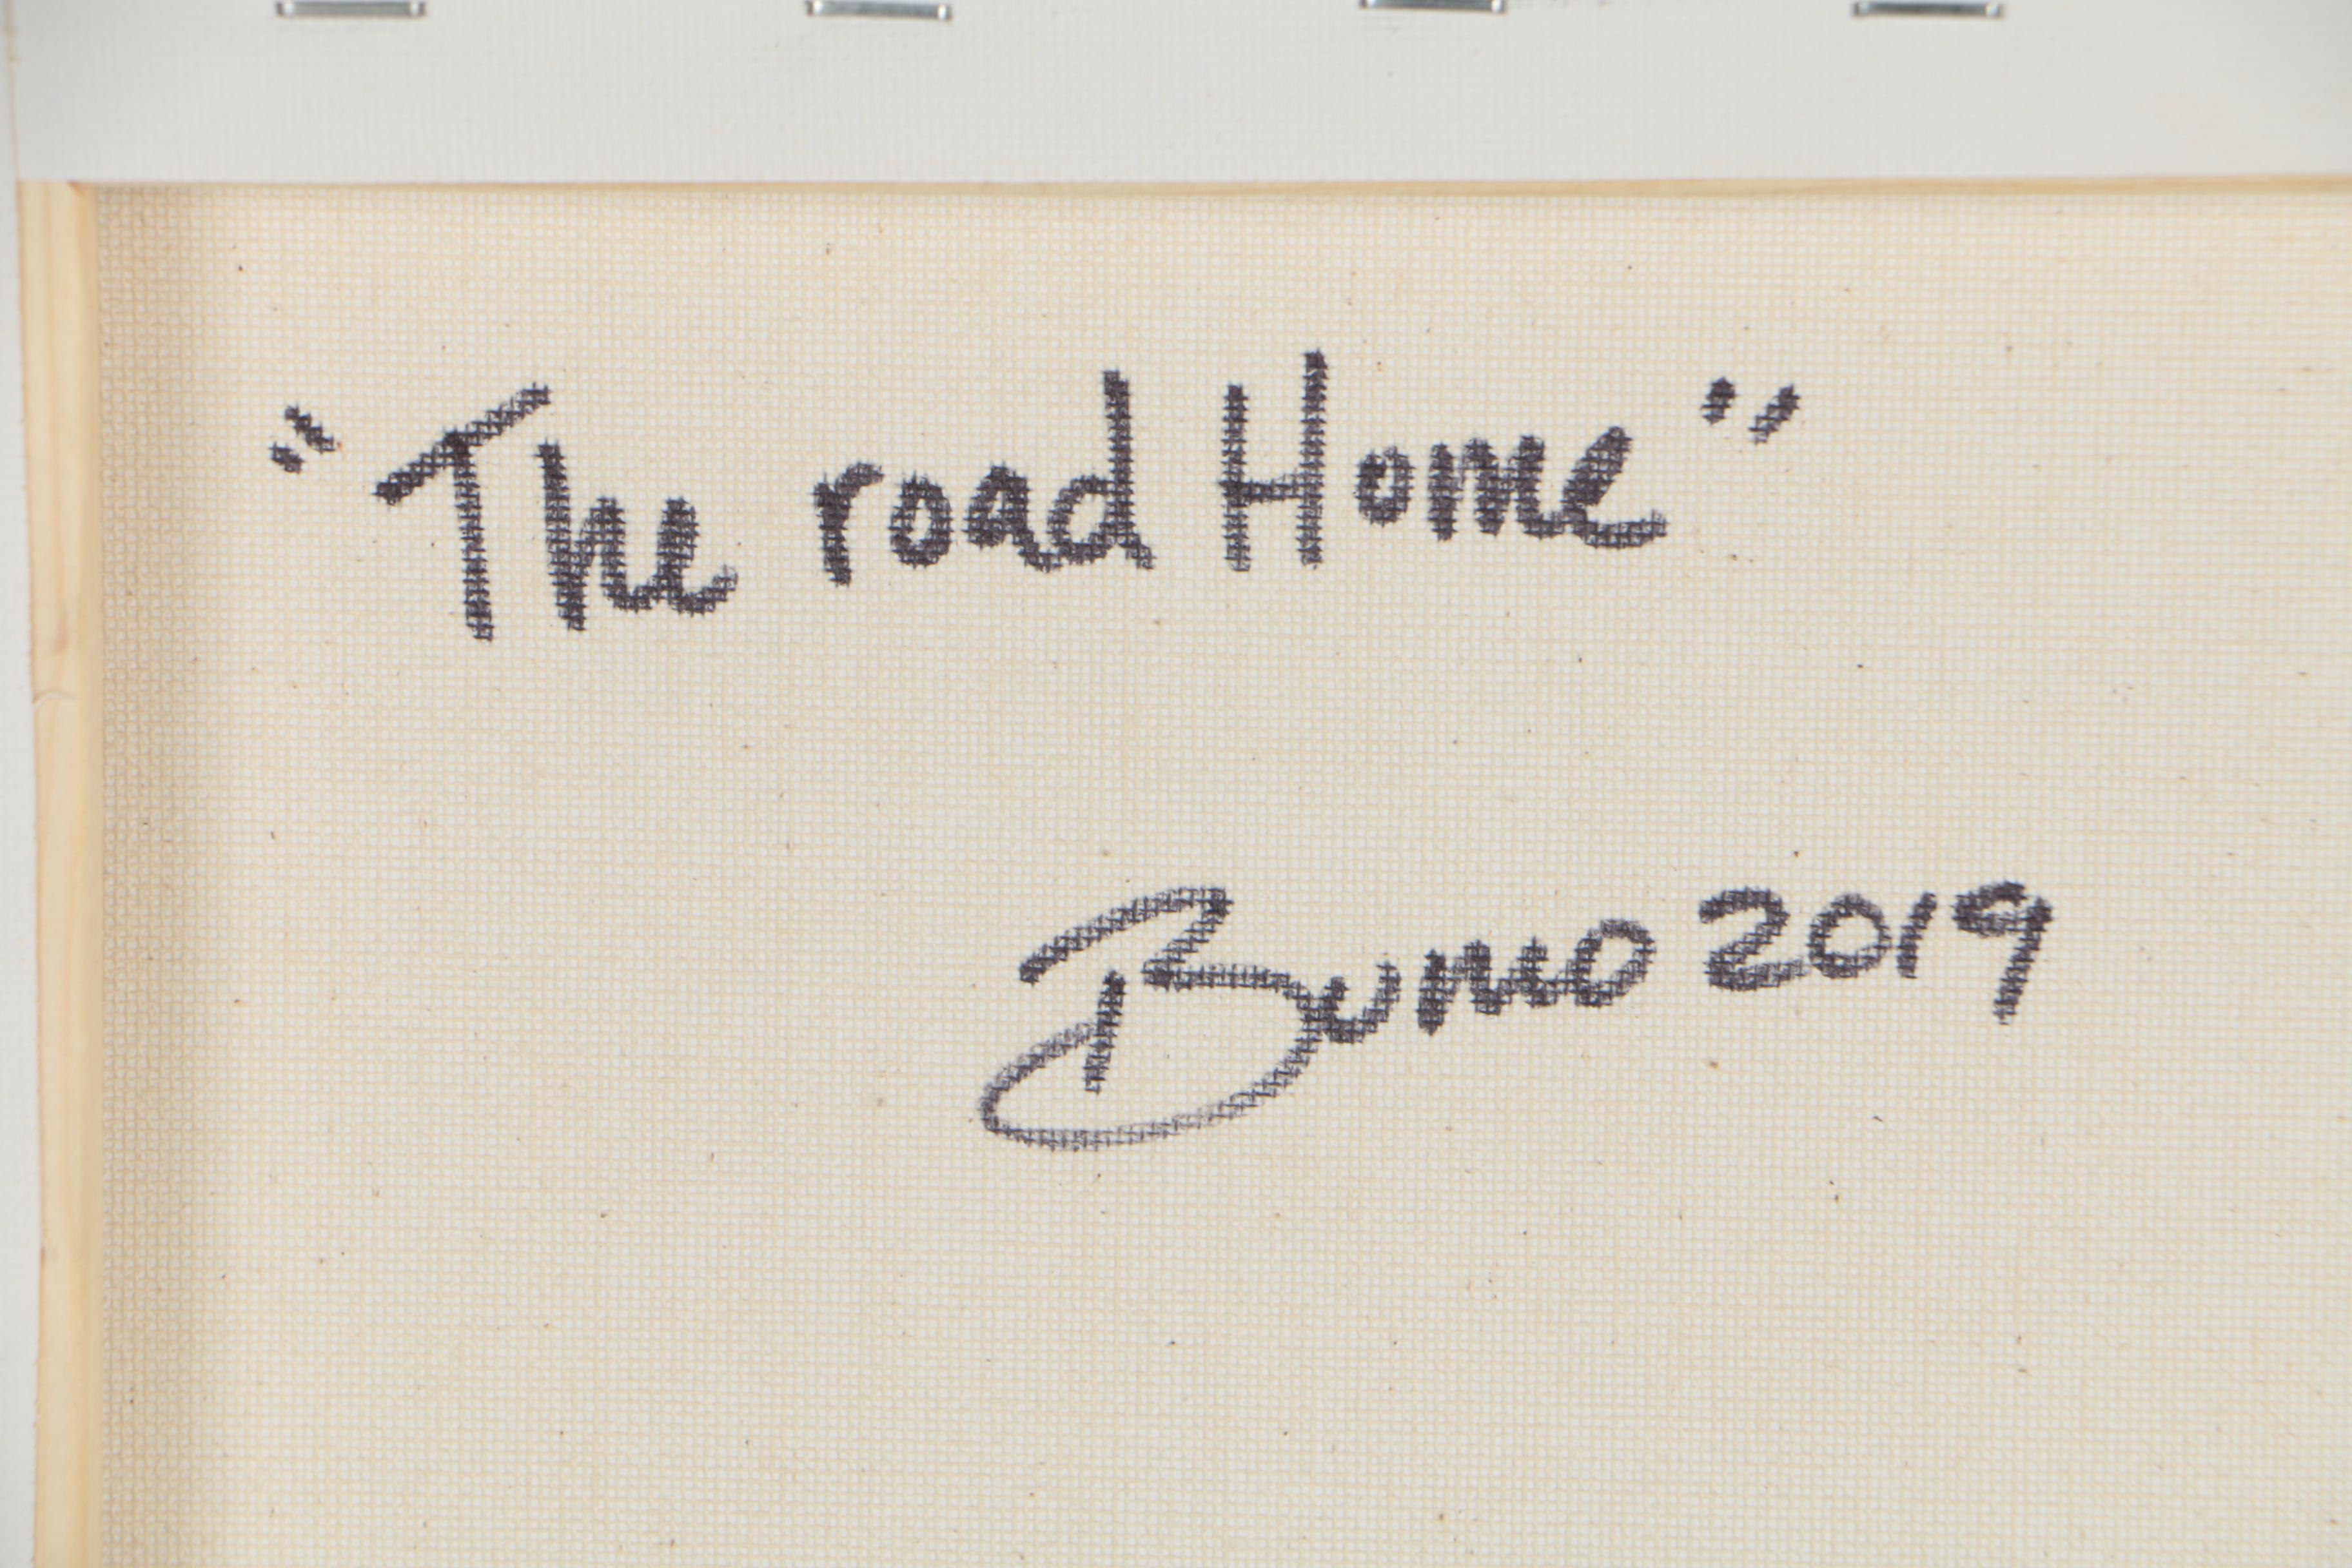 "The road Home"
Bumo 2019